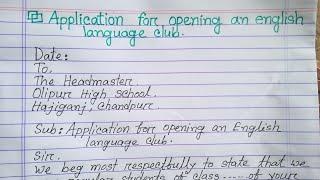 Application for opening an english
language club.
Date:
To,
The Headmaster.
Olipur High School.
Hajiganj, Chandpur.
Sub: Application for opening an English
language club.
Sir,
We beg most respectfully to state that we
regular students of class...... of your